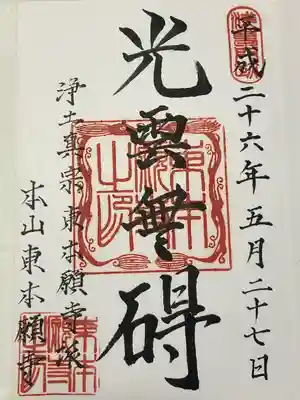 平成二十六年五月二十七日
光雲無碍
浄土真宗東本願寺派
本山東本願寺